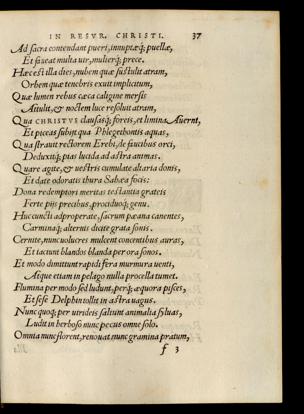 IN RESVR. CHRISTI. 37
Ad sacra contendant pueri, innuptæq; puellæ,
Et faueat multa uir, mulierq; prece.
Hæc est illa dies, nubem quæ sustulit atram,
Orbem quæ tenebris exuit implicitum,
Quæ lumen rebus cæca caligine mersis
Attulit, & noctem luce resoluit atram,
Qua CHRISTVS clausasq; foreis, et limina Auerni,
Et piceas subijt qua Phlegethontis aquas,
Qua strauit rectorem Erebi, de faucibus orci,
Deduxitq; pias lucida ad astra animas.
Quare agite, & uestris cumulate altaria donis,
Et date odoratis thura Sabæa focis:
Dona redemptori meritas testantia grateis
Ferte pijs precibus, prociduoq; genu.
Huc cuncti adproperate, sacrum pæana canentes,
Carminaq; alternis dicite grata sonis.
Cernite, nunc uolucres mulcent concentibus auras,
Et tactunt blandos blanda per ora sonos.
Et modo dimittunt rapidi fera murmura uenti,
Atque etiam in pelago nulla procella tumet.
Flumina per modo sed ludunt, perq; æquora pisces,
Et sese Delphin tollit in astra uagus.
Nunc quoq; per utrideis saliunt animalia siluas,
Ludit in herboso nunc pecus omne solo.
Omnia nunc florent, renouat nunc gramina pratum,
f 3